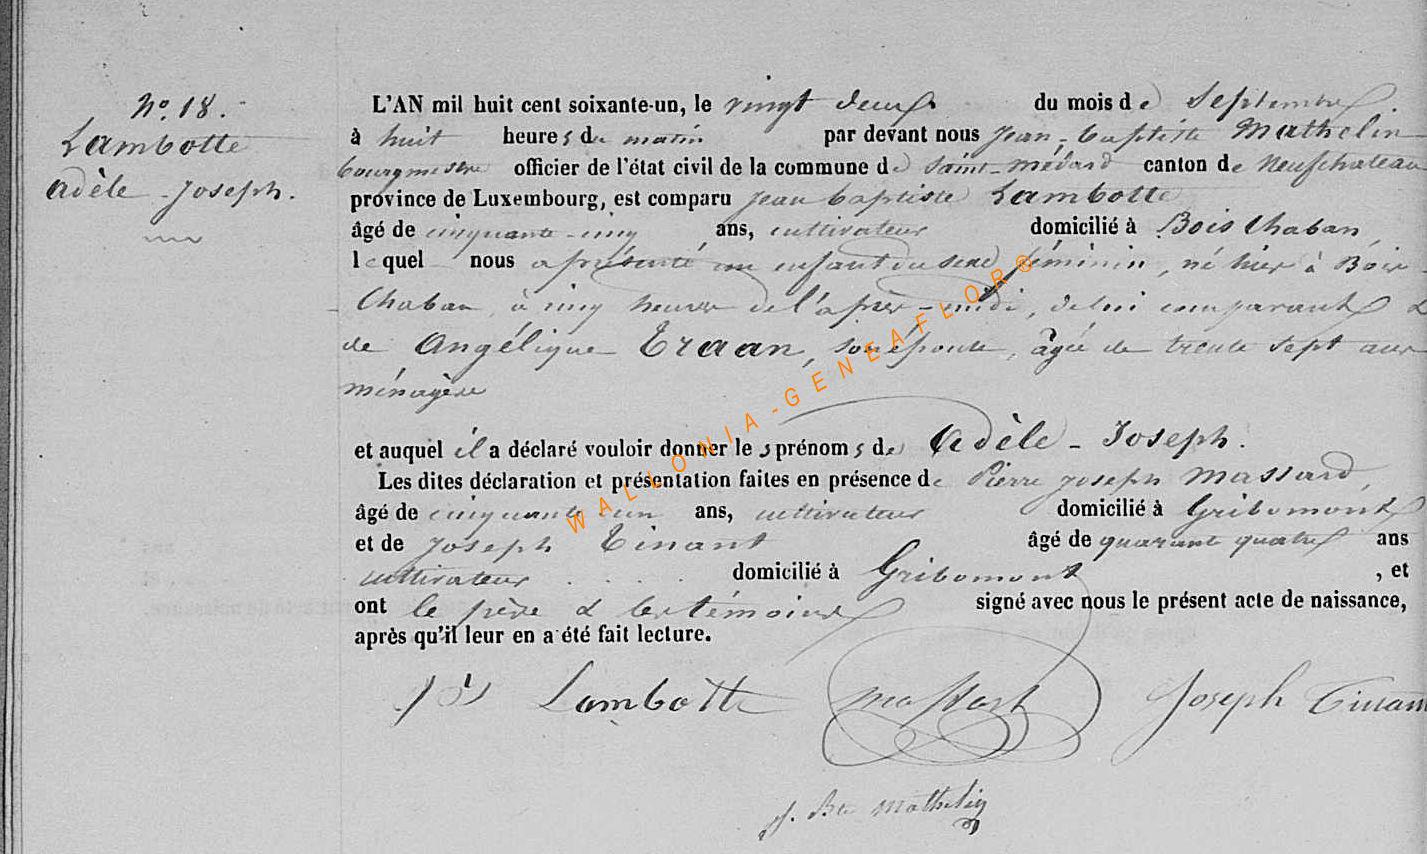 No. 18.
Lambotte
Adèle - Joseph.
L'AN mil huit cent soixante-un, le vingt deux du mois de Septembre.
à huit heures du matin par devant nous Jean-Baptiste Mathelin
bourgmestre officier de l'état civil de la commune de Saint-Médard canton de Neufchateau
province de Luxembourg, est comparu Jean Baptiste Lambotte
âgé de cinquante-cinq ans, cultivateur domicilié à Bois Chaban,
lequel nous a présenté un enfant du sexe féminin, né hier à Bois
Chaban, à cinq heures de l'après-midi, de lui comparant &
de Angélique Eraan, son épouse, âgée de trente sept ans
ménagère
et auquel il a déclaré vouloir donner les prénoms de Adèle - Joseph.
Les dites déclaration et présentation faites en présence de Pierre Joseph Massard,
âgé de cinquante un ans, cultivateur domicilié à Gribomont
et de Joseph Tinant âgé de quarante quatre ans
cultivateur . . . . . domicilié à Gribomont , et
ont le père & les témoins signé avec nous le présent acte de naissance,
après qu'il leur en a été fait lecture.
Lambotte Massart Joseph Tinant
J. Bte Mathelin
WALLONIA-GENEAFLOR®